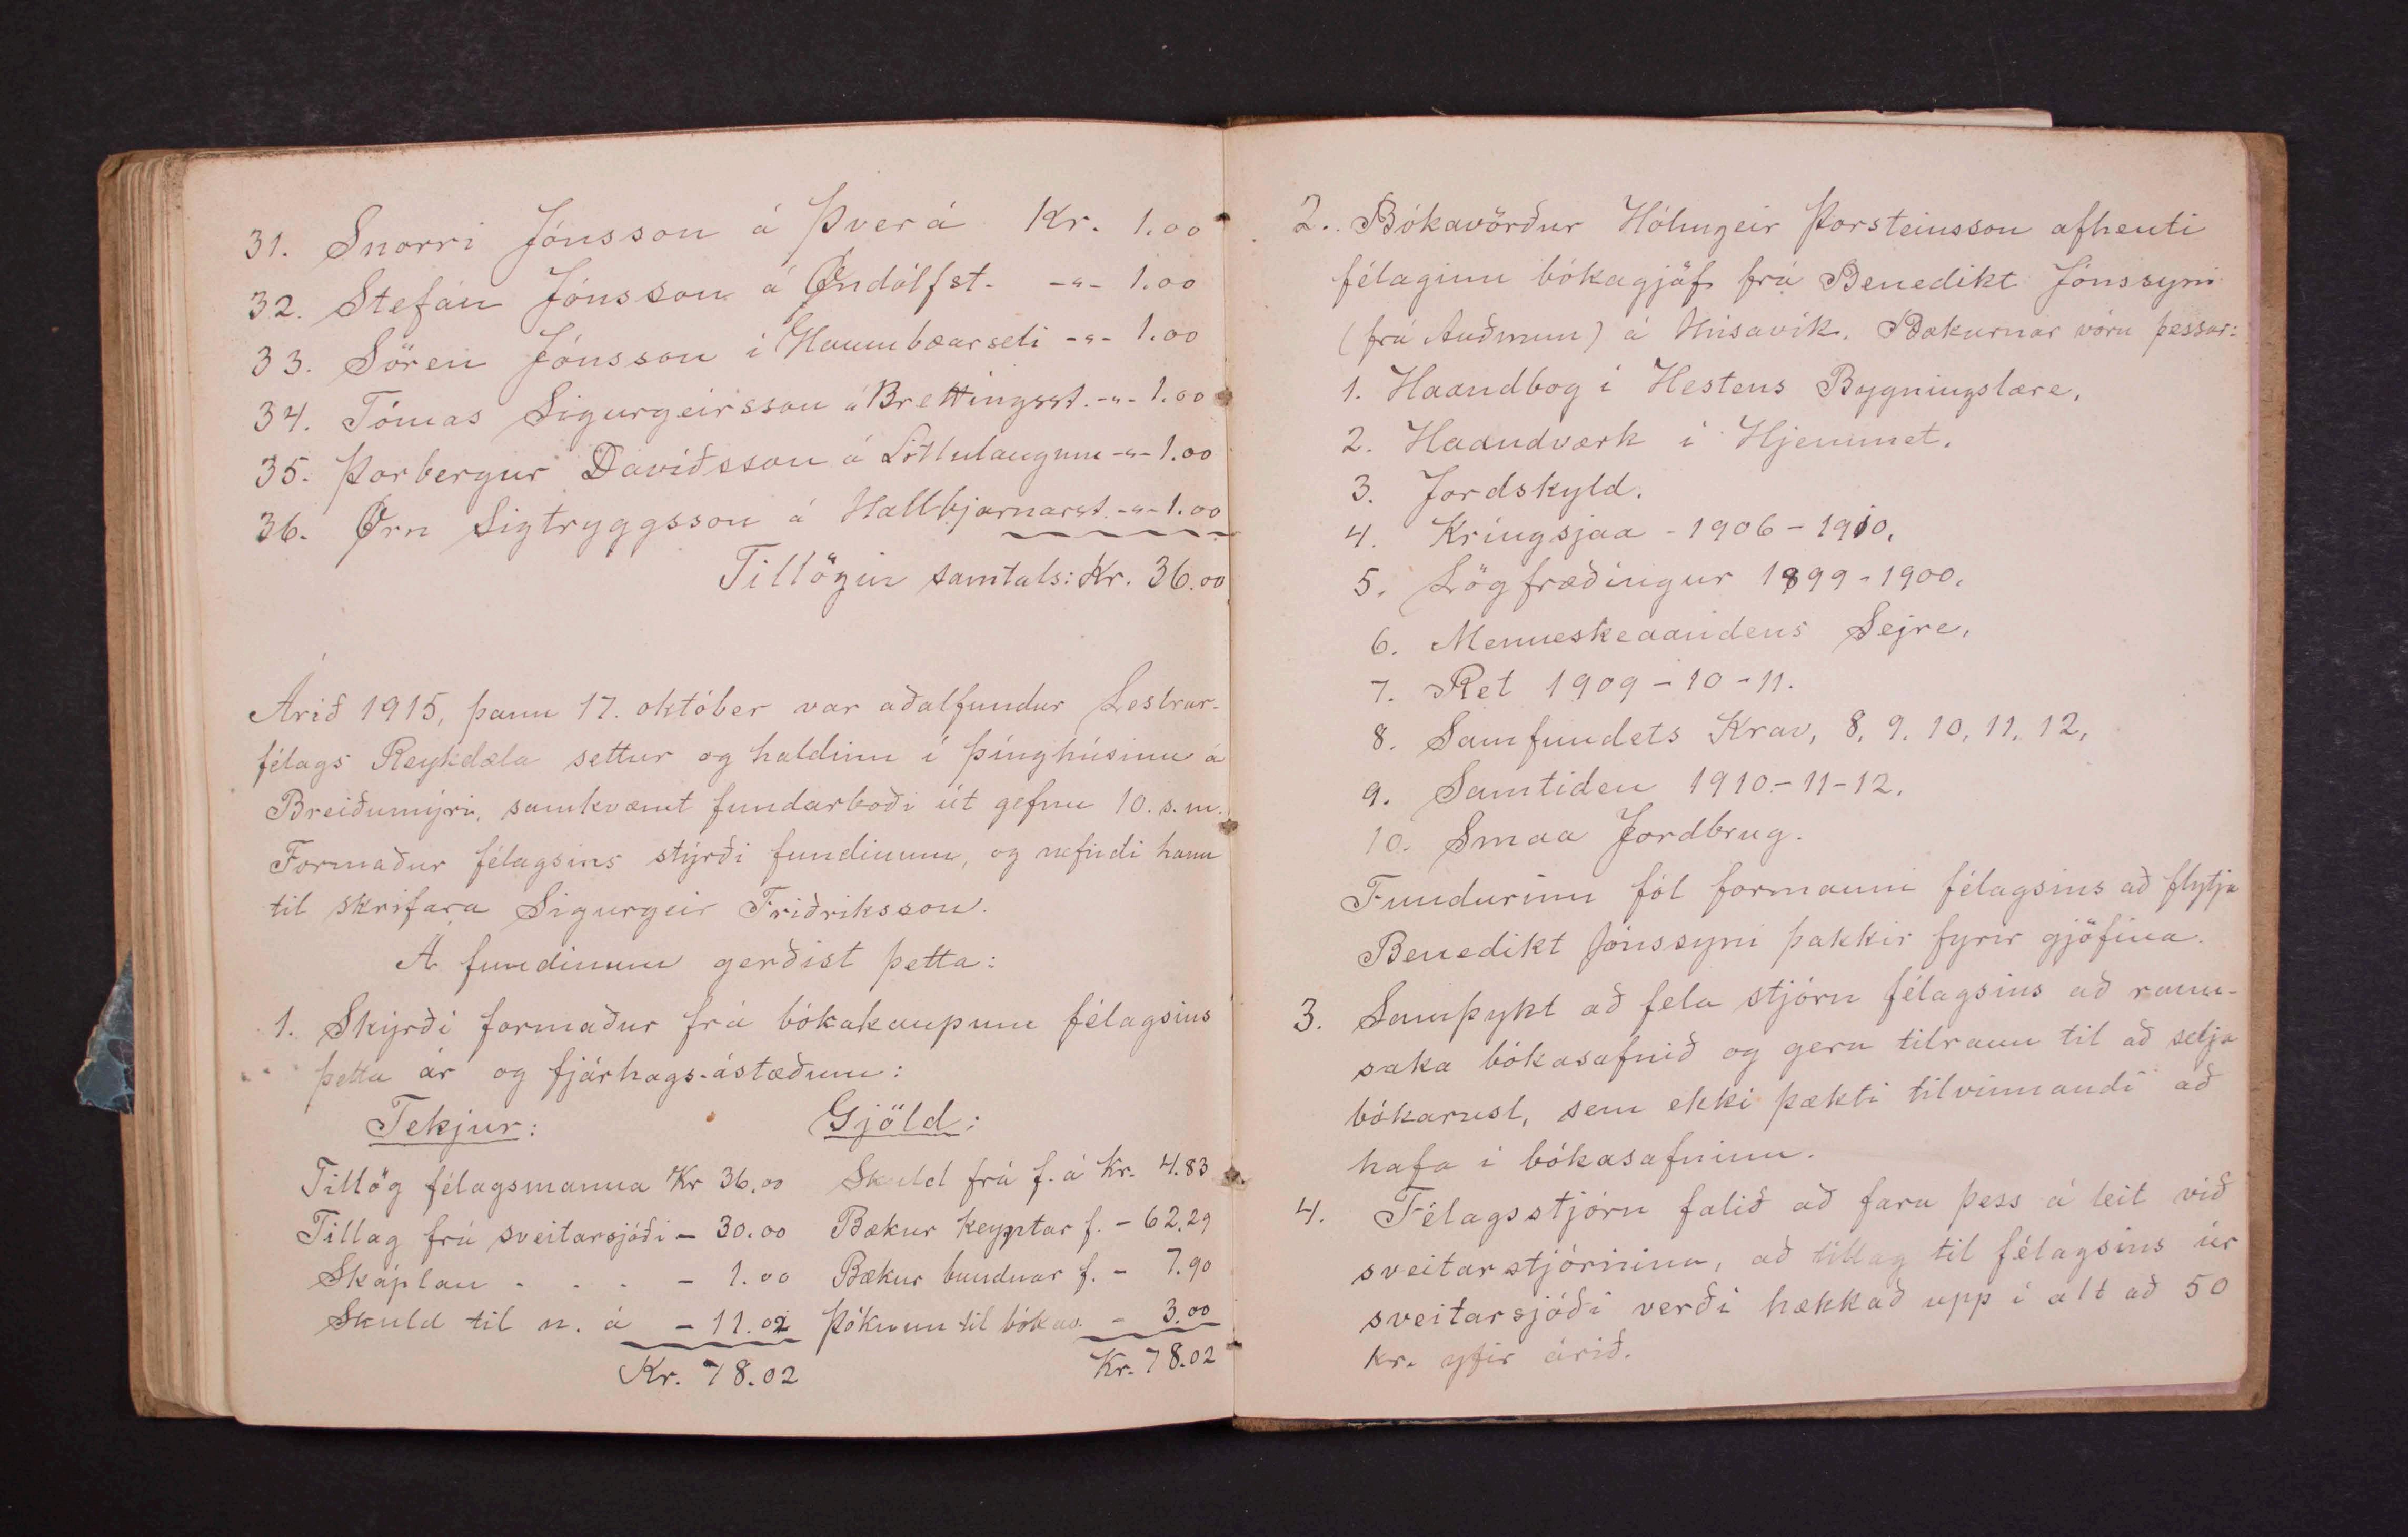 31. Snorri Jónsson á Þverá Kr. 1.00
32. Stefán Jónsson á Öndólfst. -"- 1.00
33. Sören Jónsson í Glaumbæarseli -"- 1.00
34. Tómas Sigurgeirsson á Brettingsst. -"- 1.00
35. Þorbergur Davíðsson á Litlulaugum -"- 1.00
36. Örn Sigtryggsson á Hallbjarnarst. -"- 1.00
Tillögin samtals: Kr. 36.00
Árið 1915, þann 17. október var aðalfundur Lestrar-
félags Reykdæla settur og haldinn í þinghúsinu á
Breiðumýri, samkvæmt fundarboði út gefnu 10. s. m.
Formaður félagsins stýrði fundinum, og nefndi hann
til skrifara Sigurgeir Friðriksson.
Á fundinum gerðist þetta:
1. Skýrði formaður frá bókakaupum félagsins
þetta ár og fjárhags-ástæðum:
Tekjur: Gjöld:
Tillög félagsmanna Kr 36.00 Skuld frá f. á Kr. 4.83
Tillag frá sveitarsjóði - 30.00 Bækur keyptar f. - 62.29
Skáplan . . . - 1.00 Bækur bundnar f. - 7.90
Skuld til n. á - 11.02 Þóknun til bókav. - 3.00
Kr. 78.02 Kr. 78.02
2. Bókavörður Hólmgeir Þorsteinsson afhenti
félaginu bókagjöf frá Benedikt Jónssyni
(frá Auðnum) á Húsavík. Bækurnar vóru þessar:
1. Haandbog i Hestens Bygningslære.
2. Haandværk i Hjemmet.
3. Jordskyld.
4. Kringsjaa - 1906 - 1910.
5. Lögfræðingur 1899 - 1900.
6. Menneskeaandens Sejre.
7. Ret 1909 - 10 - 11.
8. Samfundets Krav, 8, 9, 10, 11, 12,
9. Samtiden 1910 - 11 - 12.
10. Smaa Jordbrug.
Fundurinn fól formanni félagsins að flytja
Benedikt Jónssyni þakkir fyrir gjöfina.
3. Samþykt að fela stjórn félagsins að rann-
saka bókasafnið og gera tilraun til að selja
bókarusl, sem ekki þækti tilvinnandi að
hafa í bókasafninu.
4. Félagsstjórn falið að fara þess á leit við
sveitarstjórnina, að tillag til félagsins úr
sveitarsjóði verði hækkað upp í alt að 50
kr. yfir árið.